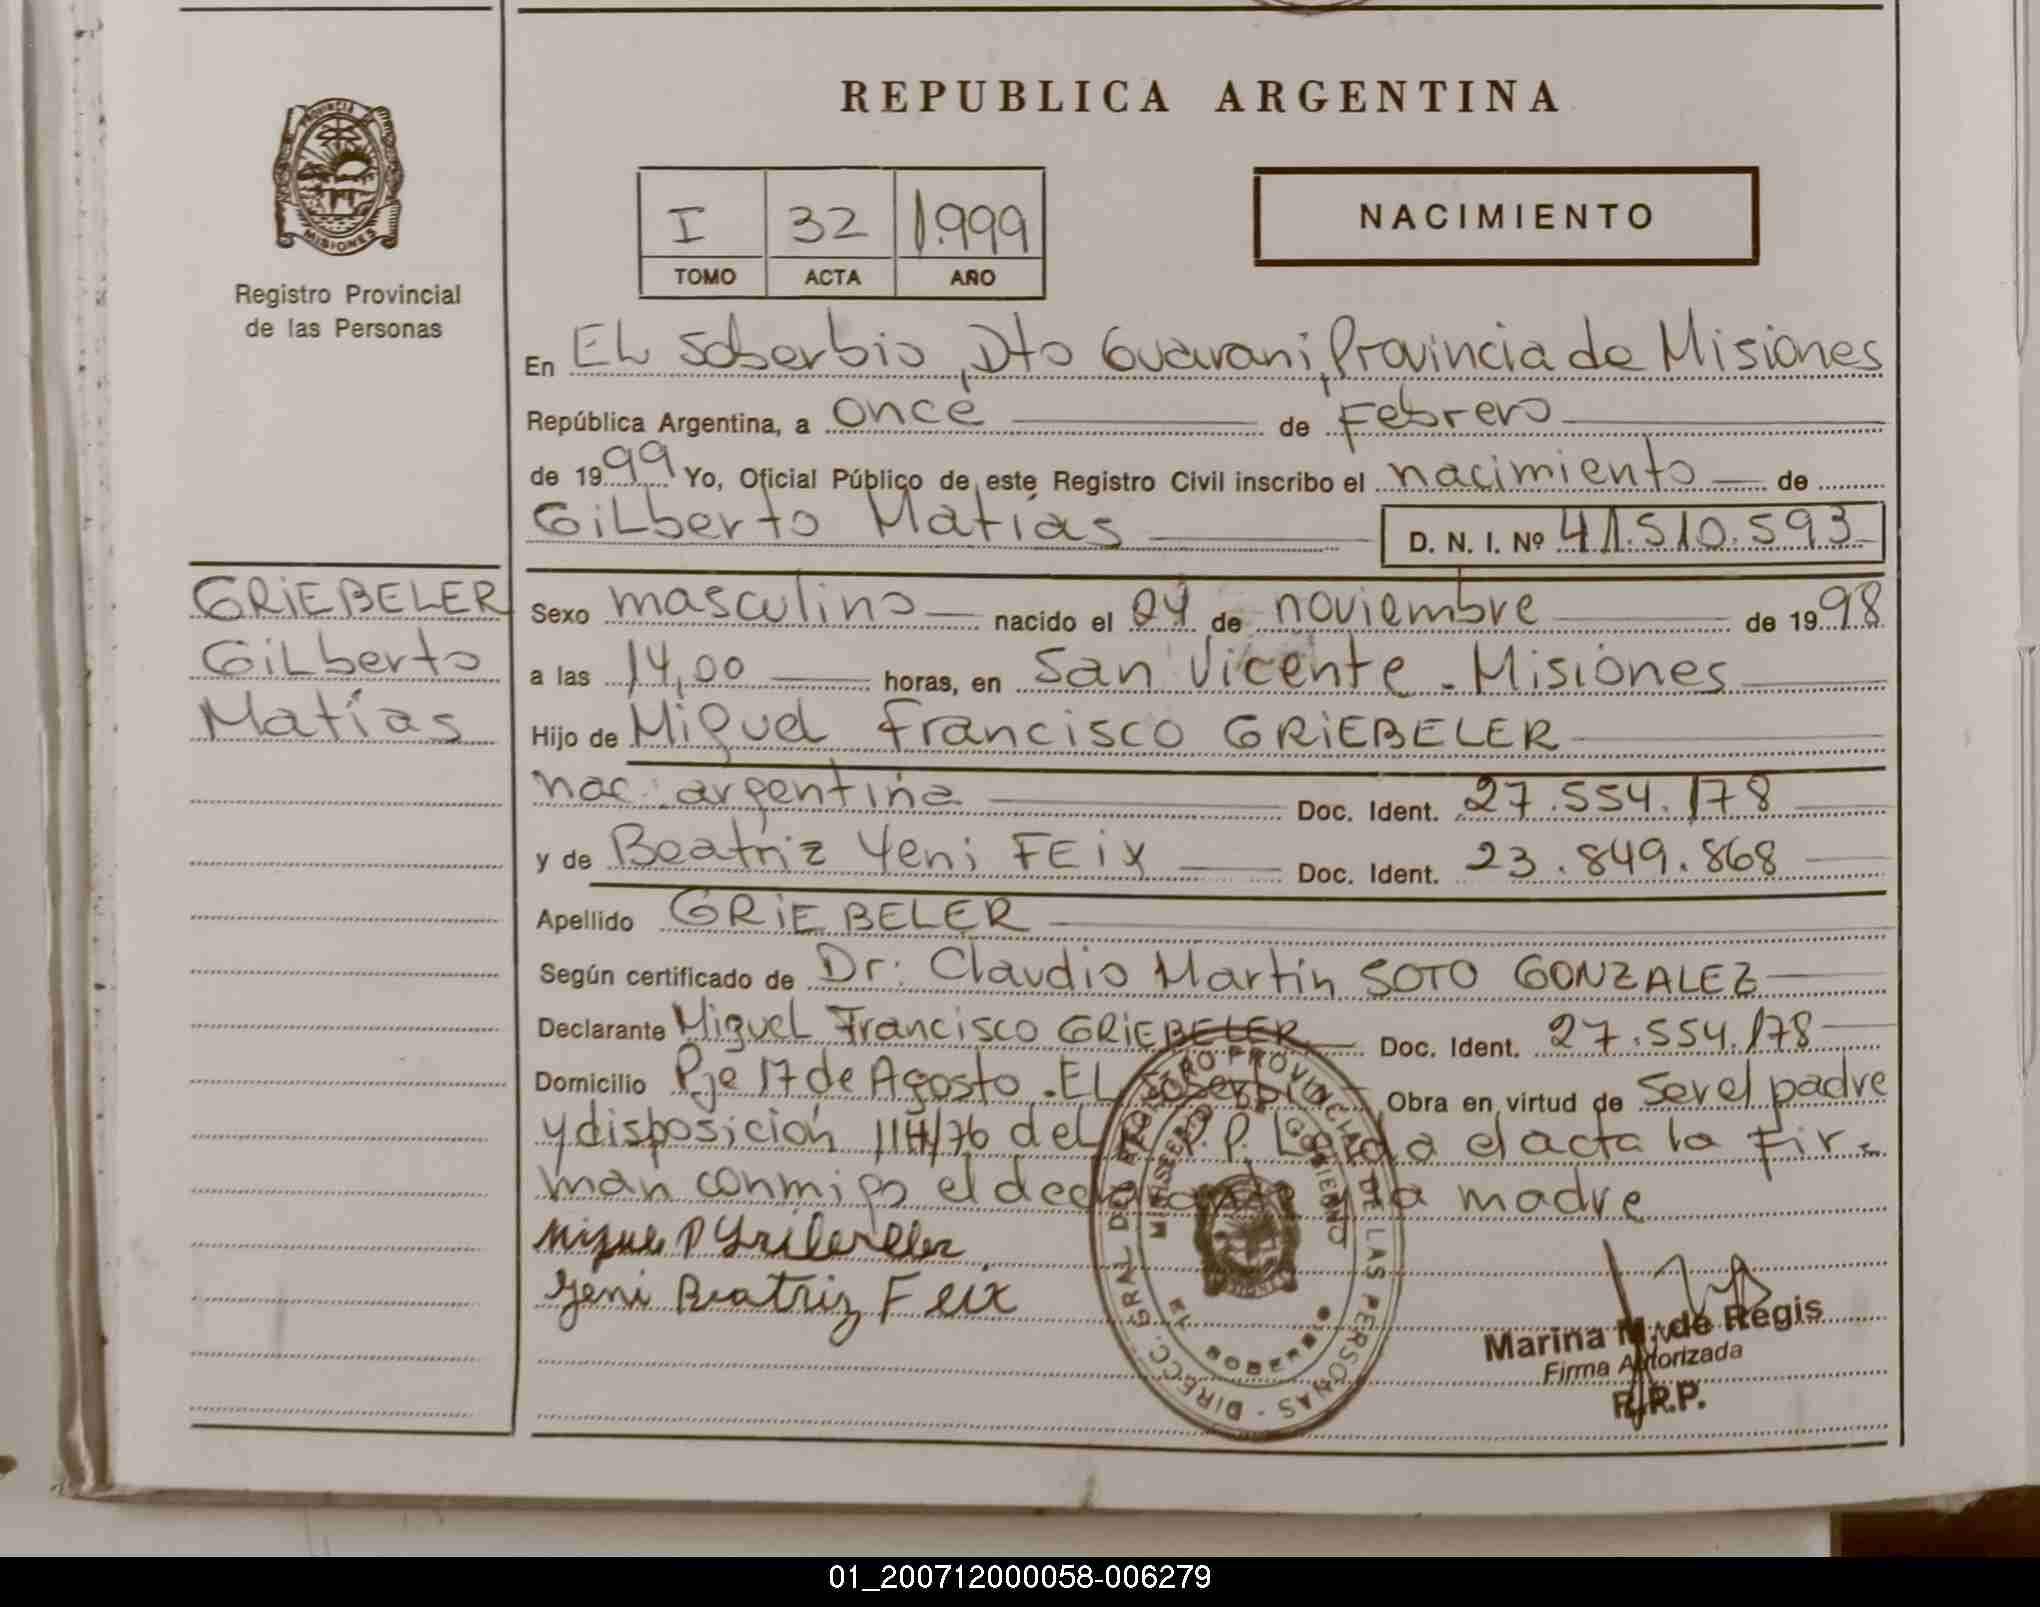 REPUBLICA ARGENTINA
PROVINCIA DE
MISIONES
Registro Provincial
de las Personas
I 32 1.999
TOMO ACTA AÑO
NACIMIENTO
En EL Soberbio, Dto Guarani, Provincia de Misiones
República Argentina, a once de Febrero
de 1999 Yo, Oficial Público de este Registro Civil inscribo el nacimiento de
GiLberto Matías D. N. I. Nº 41.510.593
GRiEBELER
GiLberto
Matías
Sexo masculino nacido el 24 de noviembre de 1998
a las 14,00 horas, en San Vicente - Misiones
Hijo de Miguel Francisco GRiEBELER
nac: argentina Doc. Ident. 27.554.178
y de Beatriz Yeni FEiX Doc. Ident. 23.849.868
Apellido GRiEBELER
Según certificado de Dr: Claudio Martín SOTO GONZALEZ
Declarante MigueL Francisco GRiEBELER Doc. Ident. 27.554.178
Domicilio Pje 17 de Agosto. EL Soberbio Obra en virtud de ser el padre
y disposición 114/76 del R.P.P. Leída el acta la fir-
man conmigo el declarante y la madre
Yeni Beatriz Feix
DIRECC. GRAL DEL REGISTRO PROVINCIAL DE LAS PERSONAS
GOBIERNO
EL SOBERBIO
Marina M. de Regis
Firma Autorizada
R.R.P.
01_200712000058-006279